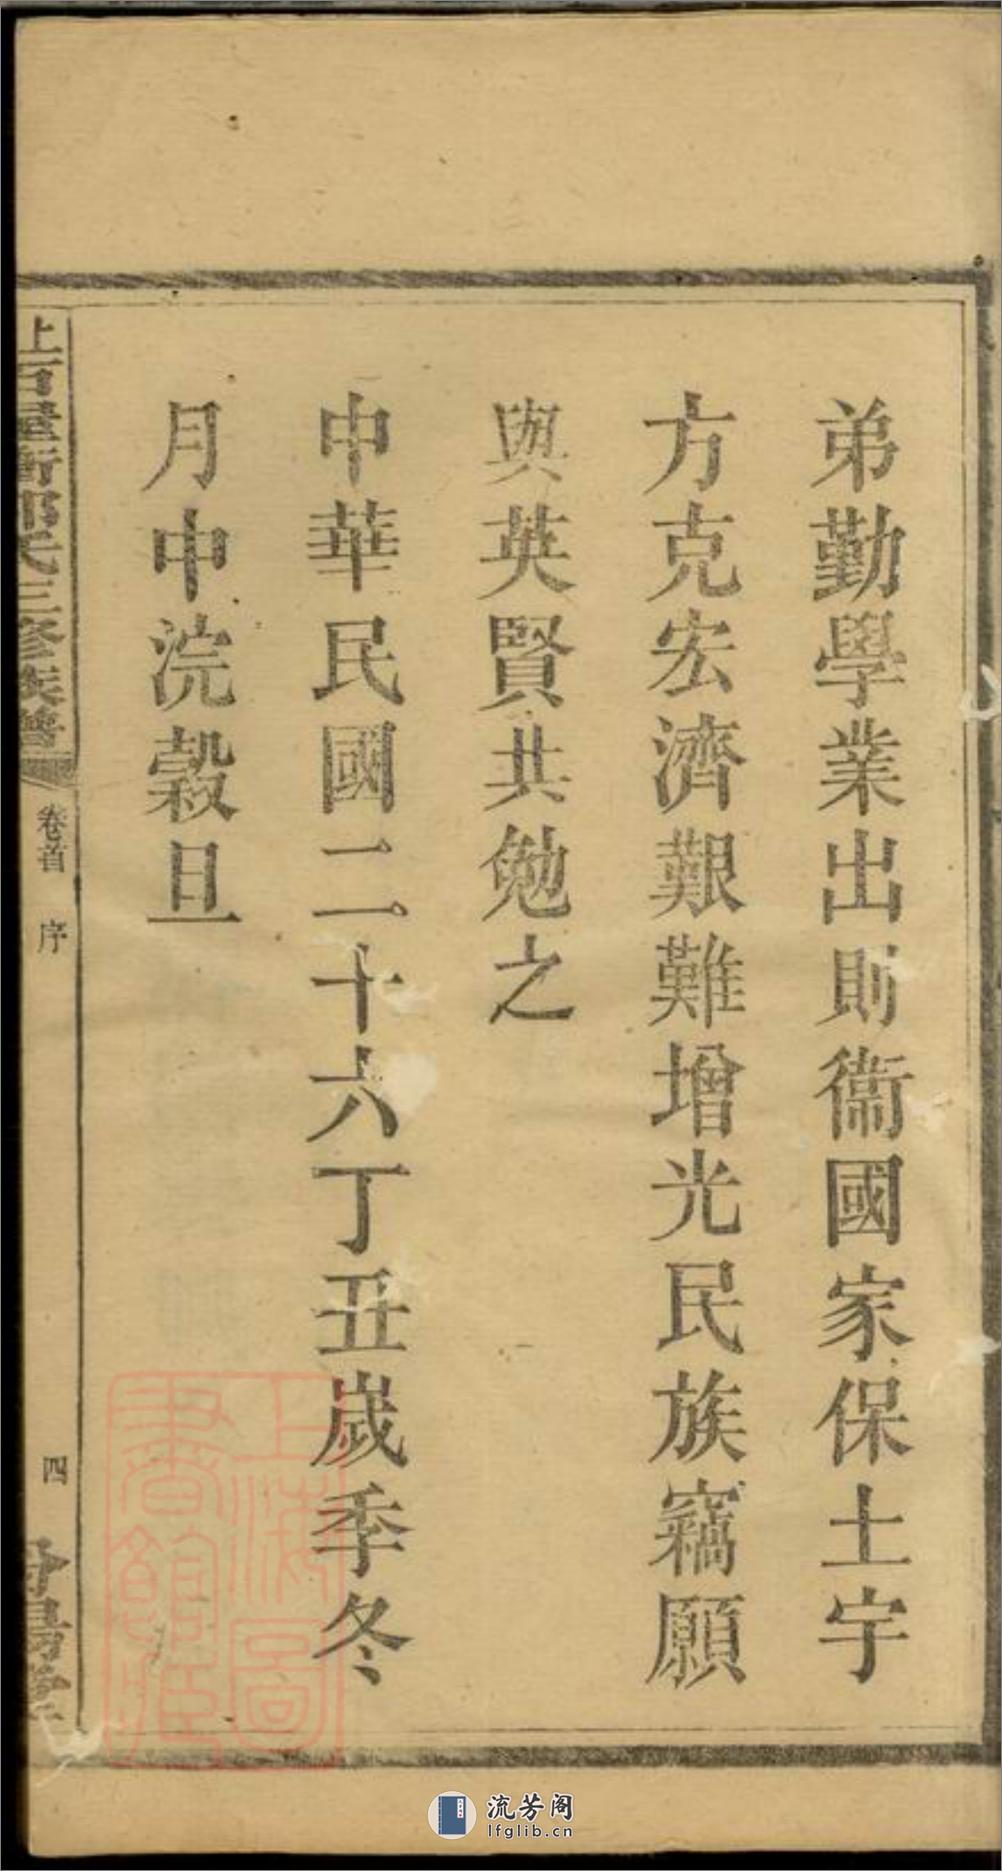 弟勤學業出則衞國家保土宇
方克宏濟艱難增光民族竊願
與英賢共勉之
中華民國二十六丁丑歲季冬
月中浣穀旦
氏三修族譜
卷首 序
四
上海圖書館藏
流芳阁
lfglib.cn